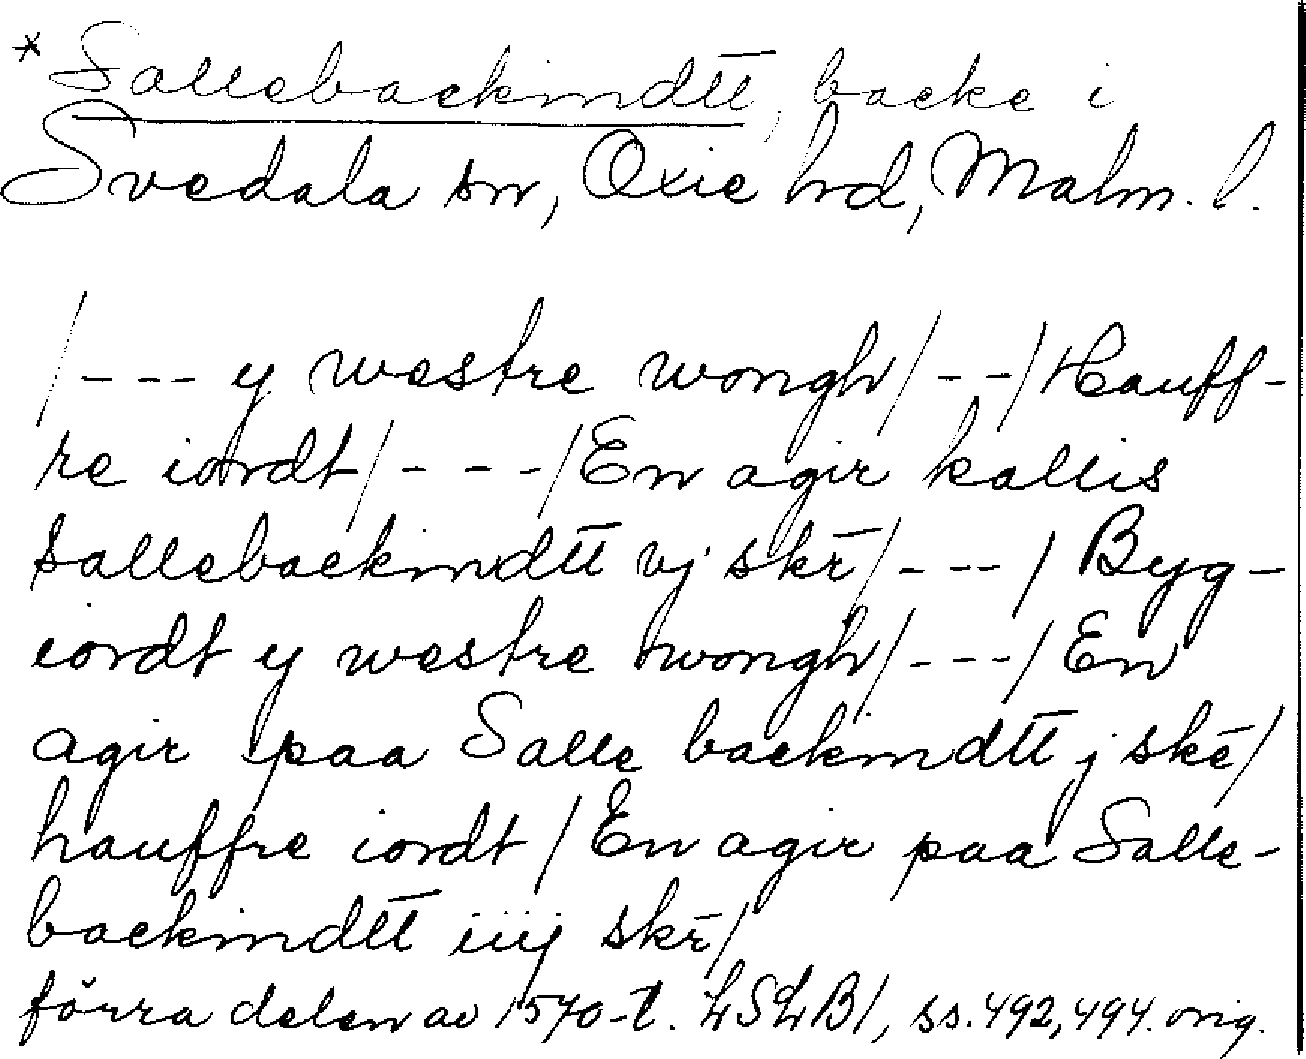 * Sallebackindtt, backe i
Svedala sn, Oxie hd, Malm. l.
/--- y westre wongh/--/Hauff-
re iordt/---/En agir kallis
Sallebackindtt vj skr̄/---/ Byg-
iordt y westre wongh/---/ En
agir paa Salle backindtt j skē/
hauffre iordt / En agir paa Salle-
backindtt iiij skr̄/
förra delen av 1570-t. LSLB1, ss. 492, 494. orig.